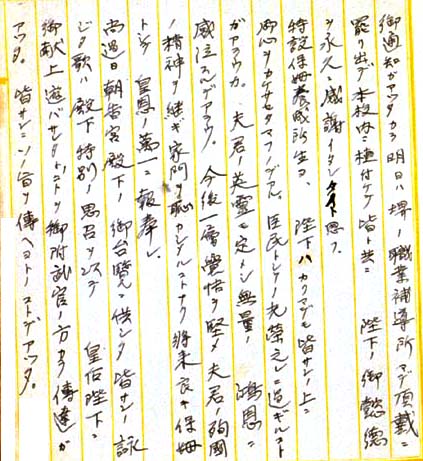 御通知ガアッタカラ明日ハ堺ノ職業補導所マデ頂戴ニ
罷リ出デ本校内ニ植付ケテ皆ト共ニ 陛下ノ御懿徳
ヲ永久ニ感謝イタシタイト思フ。
特設保姆養成所生ヨ、 陛下ハカクマデモ皆サンノ上ニ
御心ヲカケサセタマフノデアル。臣民トシテ光栄之レニ過ギルコト
ガアラウカ。夫君ノ英霊モ定メシ無量ノ 鴻恩ニ
感泣スルデアラウ。今後一層覚悟ヲ堅メ夫君ノ殉国
ノ精神ヲ継ギ家門ヲ恥カシメルコトナク将来良キ保姆
トシテ 皇恩ノ萬一ニ報奉レ。
尚過日朝香宮殿下ノ御台覧ニ供シタ皆サンノ詠
ジタ歌ハ殿下特別ノ思召ヲ以テ 皇后陛下ニ
御献上遊バサレタトノコトヲ御附武官ノ方カラ傳達ガ
アッタ。皆サンニソノ旨ヲ傳ヘヨトノコトデアッタ。